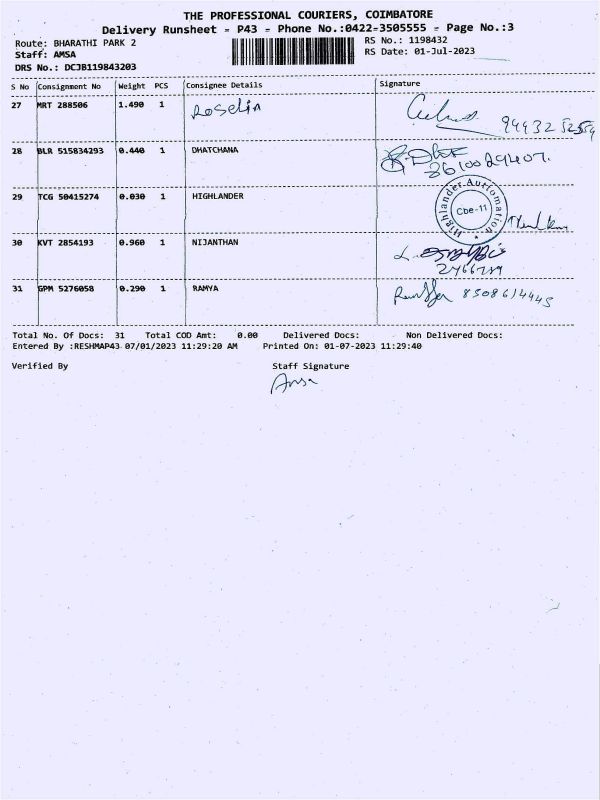 THE PROFESSIONAL COURIERS, COIMBATORE
Delivery Runsheet - P43 - Phone No.:0422-3505555 - Page No.:3
Route: BHARATHI PARK 2 RS No.: 1198432
Staff: AMSA RS Date: 01-Jul-2023
DRS No.: DCJB119843203
S No Consignment No Weight PCS Consignee Details Signature
27 MRT 288506 1.490 1 Roselin
28 BLR 515834293 0.440 1 DHATCHANA
29 TCG 50415274 0.030 1 HIGHLANDER
Highlander Automation
Cbe-11
30 KVT 2854193 0.960 1 NIJANTHAN
31 GPM 5276058 0.290 1 RAMYA 8508614445
Total No. Of Docs: 31 Total COD Amt: 0.00 Delivered Docs: Non Delivered Docs:
Entered By :RESHMAP43 07/01/2023 11:29:20 AM Printed On: 01-07-2023 11:29:40
Verified By Staff Signature
Amsa